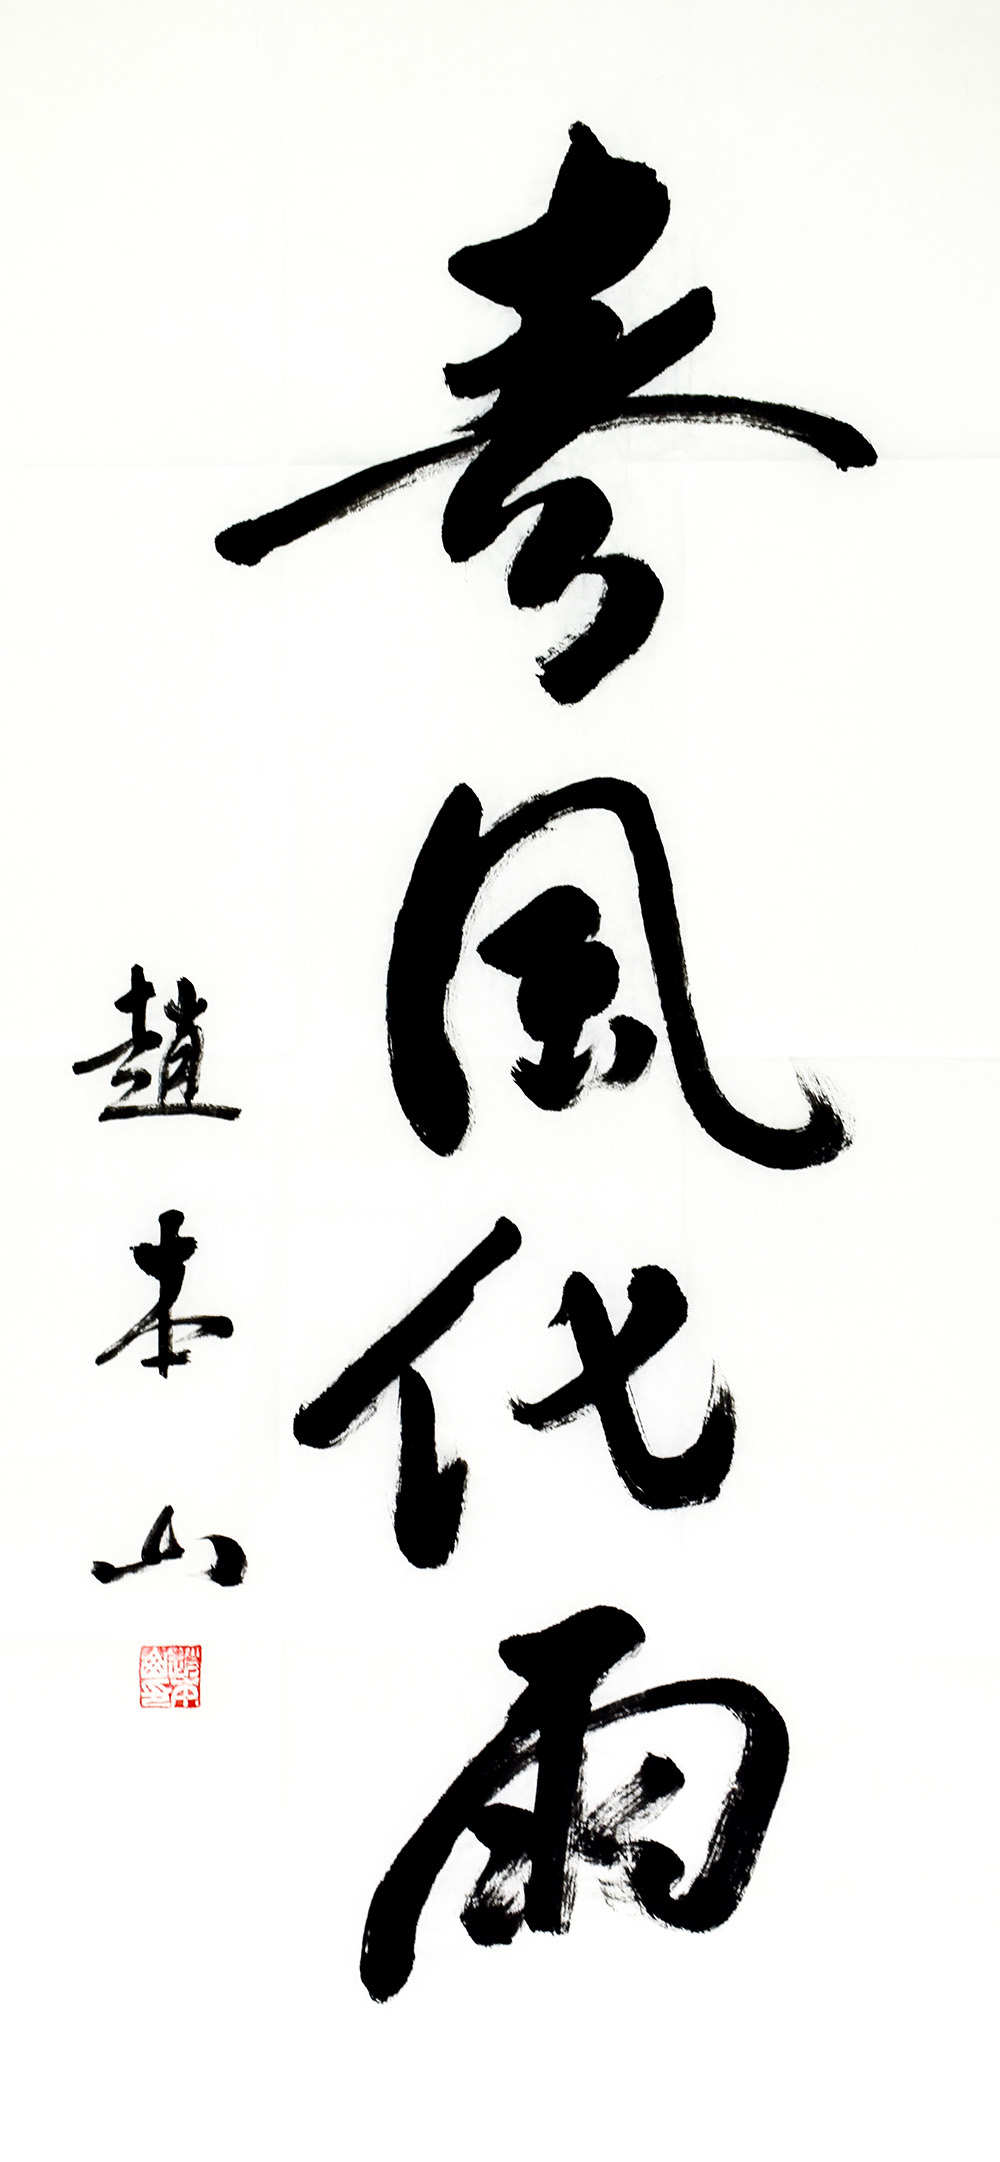 春風化雨
趙本山